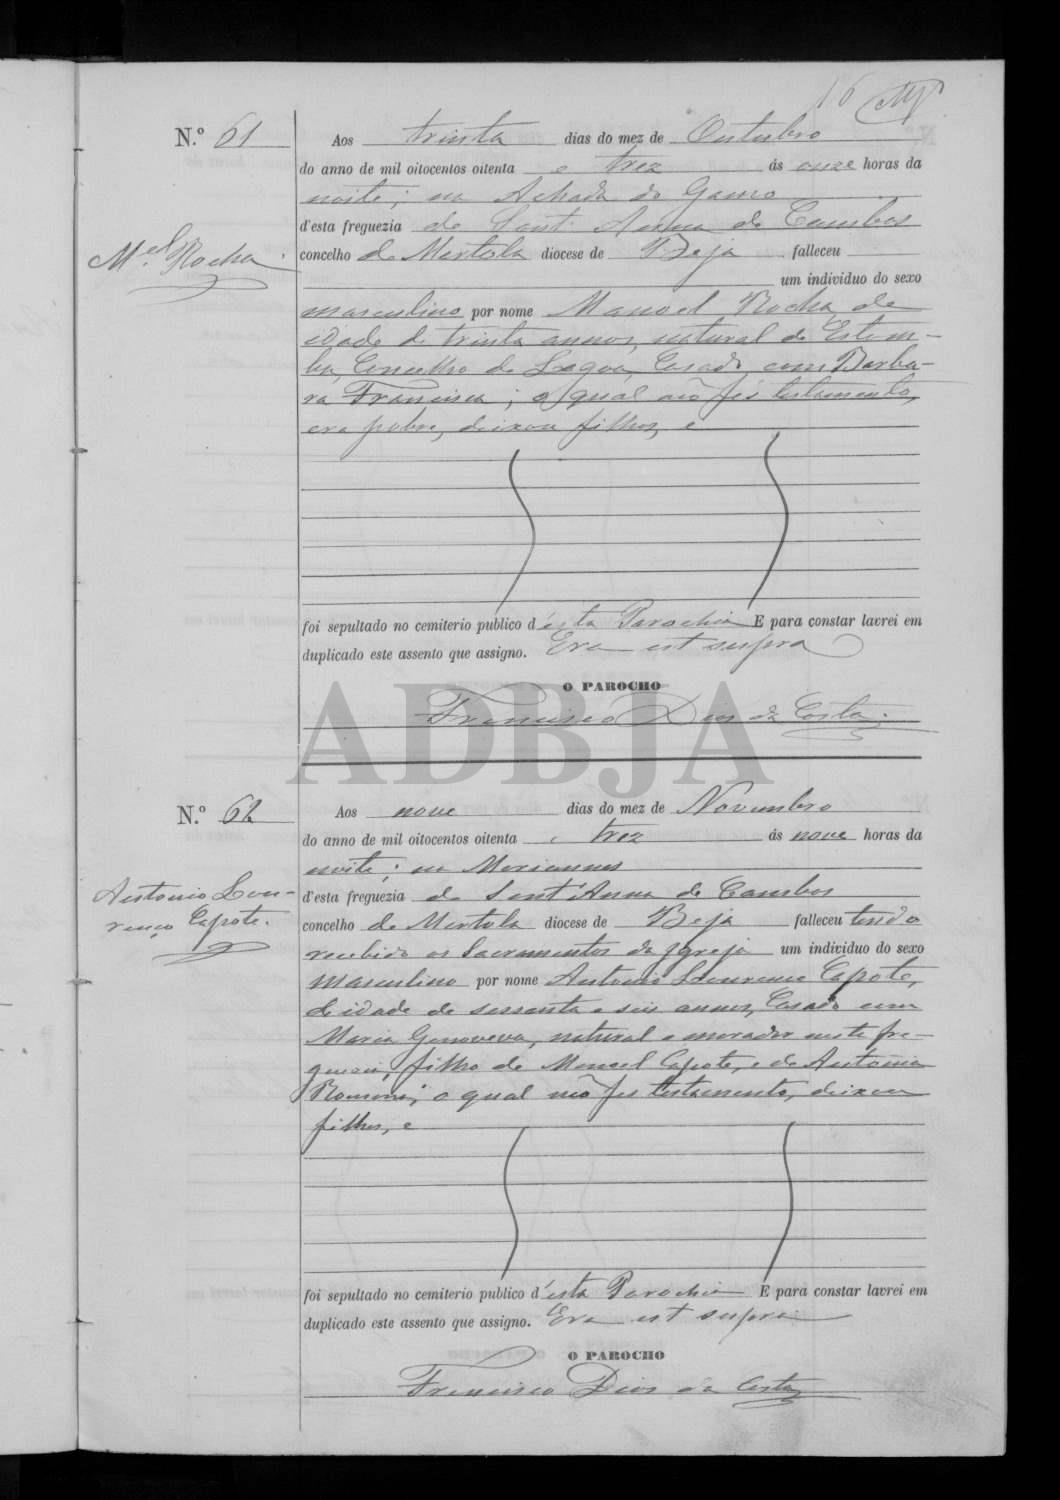 16
N.º 61
M.el Rocha
Aos trinta dias do mez de Outubro
do anno de mil oitocentos oitenta e trez ás onze horas da
noite; na Achada do Gamo
d'esta freguezia de Sant'Anna de Cambas
concelho de Mertola diocese de Beja falleceu
um individuo do sexo
masculino por nome Manoel Rocha, de
idade de trinta annos, natural de Estom-
ba, Concelho de Lagoa, Casado com Barba-
ra Francisca; o qual não fes testamento,
era pobre, deixou filhos, e
foi sepultado no cemiterio publico d'esta Parochia E para constar lavrei em
duplicado este assento que assigno. Era est supra
O PAROCHO
Francisco Dias da Costa.
ADBJA
N.º 62
Antonio Lou-
renço Capote.
Aos nove dias do mez de Novembro
do anno de mil oitocentos oitenta e trez ás nove horas da
noite; em Mariannes
d'esta freguezia de Sant'Anna de Cambas
concelho de Mertola diocese de Beja falleceu tendo
recebido os Sacramentos da Igreja um individuo do sexo
masculino por nome Antonio Lourenço Capote,
de idade de sessenta e seis annos, Casado com
Maria Genoveva, natural e morador nesta fre-
guezia, filho de Manoel Capote, e de Antonia
Romana; o qual não fes testamento, deixou
filhos, e
foi sepultado no cemiterio publico d'esta Parochia E para constar lavrei em
duplicado este assento que assigno. Era est supra
O PAROCHO
Francisco Dias da Costa